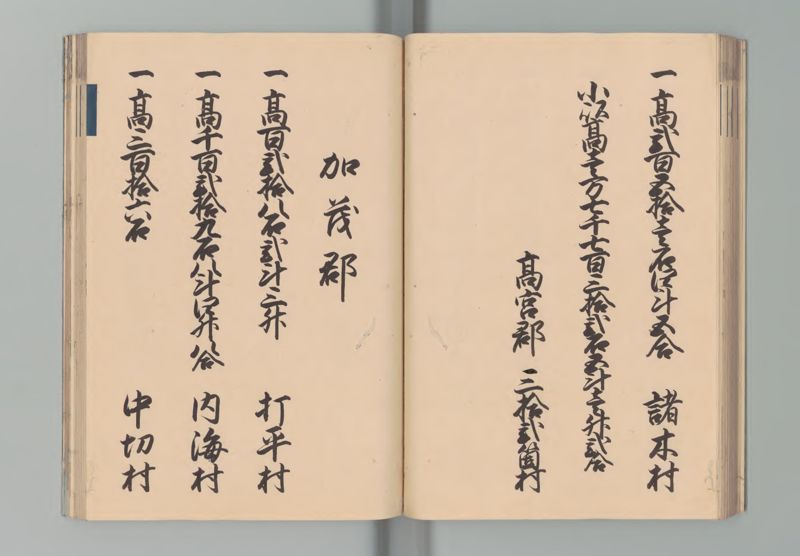 一高弐百五拾壱石四斗五合 諸木村
小以高壱万七千七百三拾弐石五斗壱升弐合
高宮郡 三拾弐箇村
加茂郡
一高百弐拾八石弐斗三升 打平村
一高千百弐拾九石八斗四升八合 内海村
一高三百拾六石 中切村